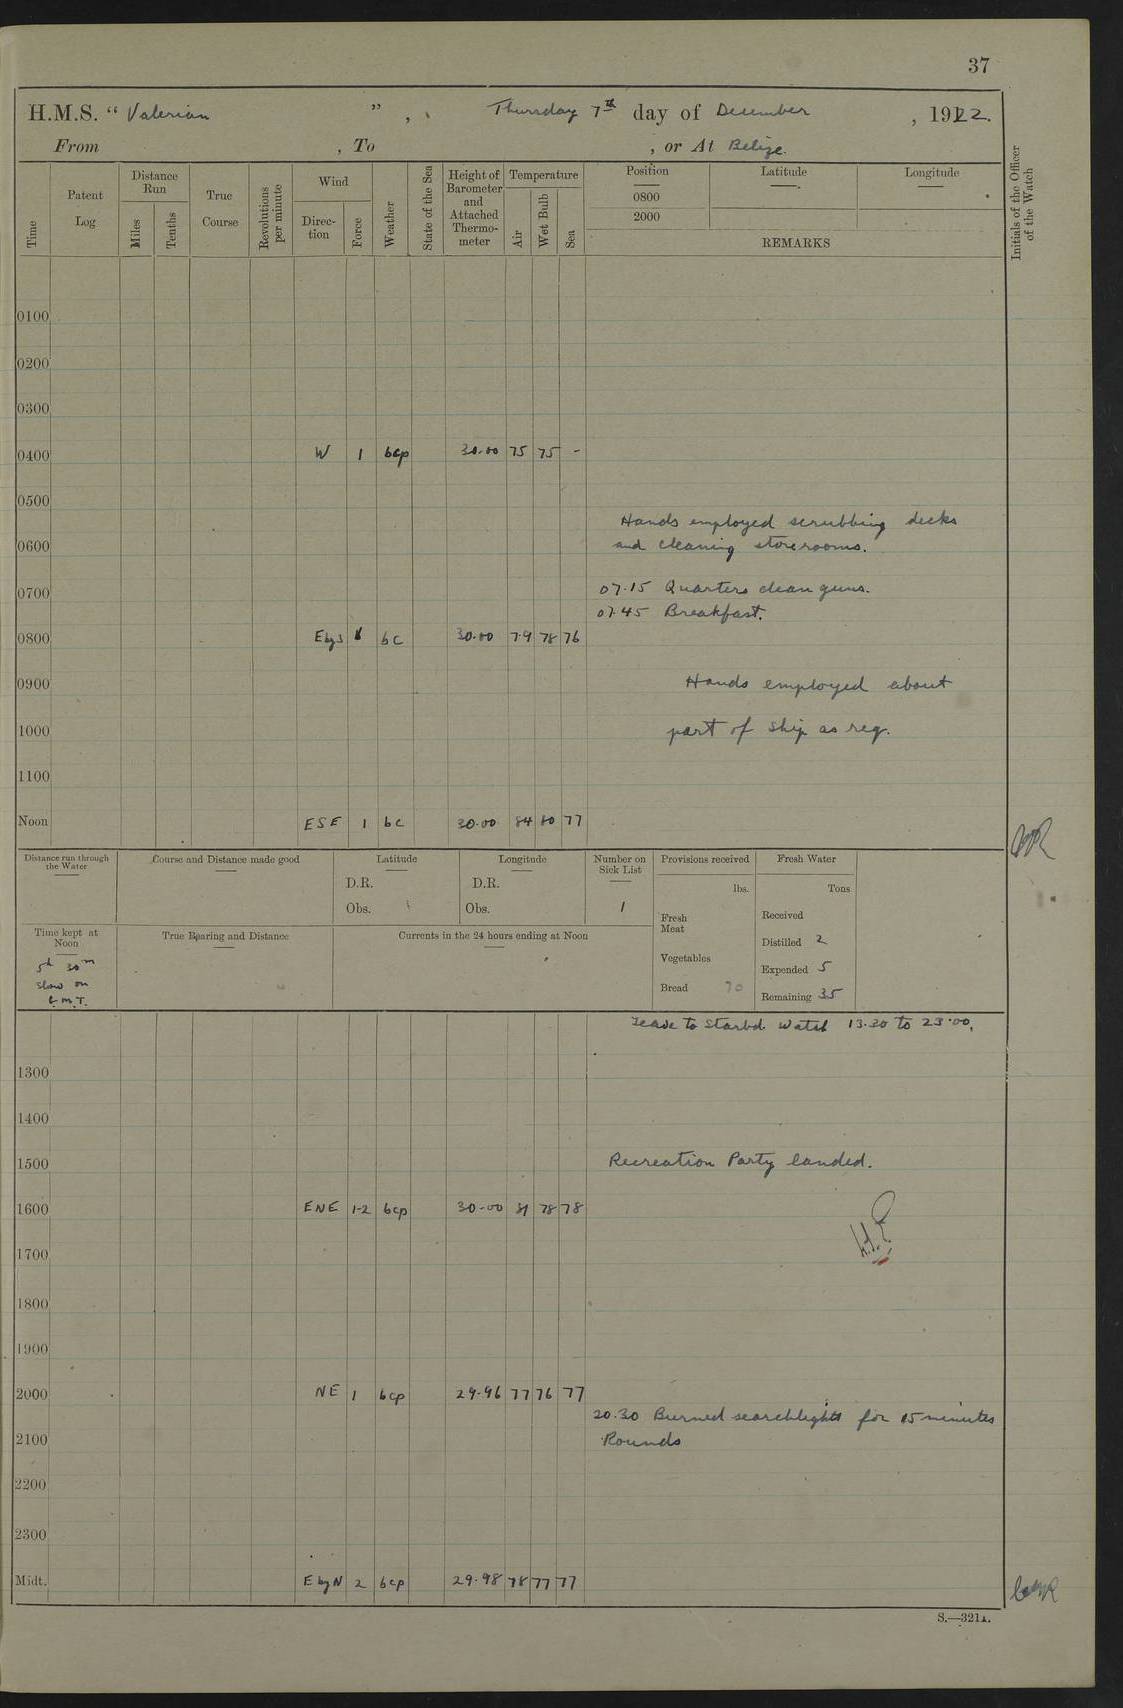 37
H.M.S. “ Valerian ” , Thursday 7th day of December , 1922.
From , To , or At Belize.
Time
Patent Log
Distance Run
Miles
Tenths
True Course
Revolutions per minute
Wind
Direc-tion
Force
Weather
State of the Sea
Height of Barometer and Attached Thermo-meter
Temperature
Air
Wet Bulb
Sea
Position
0800
2000
Latitude
Longitude
REMARKS
Initials of the Officer of the Watch
0100
0200
0300
0400 W 1 bcp 30.00 75 75 -
0500
Hands employed scrubbing decks
0600 and cleaning storerooms.
0700 07.15 Quarters clean guns.
07.45 Breakfast.
0800 E by S 1 bc 30.00 79 78 76
0900 Hands employed about
1000 part of ship as req.
1100
Noon ESE 1 bc 30.00 84 80 77
Distance run through the Water
Course and Distance made good
Latitude
D.R.
Obs.
Longitude
D.R.
Obs.
Number on Sick List
1
Provisions received
lbs.
Fresh Meat
Vegetables
Bread 70
Fresh Water
Tons
Received
Distilled 2
Expended 5
Remaining 35
Time kept at Noon
5h 30m
slow on
G.M.T.
True Bearing and Distance
Currents in the 24 hours ending at Noon
Leave to Starbd Watch 13.30 to 23.00.
1300
1400
1500 Recreation Party landed.
1600 ENE 1-2 bcp 30.00 81 78 78
1700
1800
1900
2000 NE 1 bcp 29.96 77 76 77
20.30 Burned searchlights for 15 minutes
2100 Rounds
2200
2300
Midt. E by N 2 bcp 29.98 78 77 77
S.—321A.